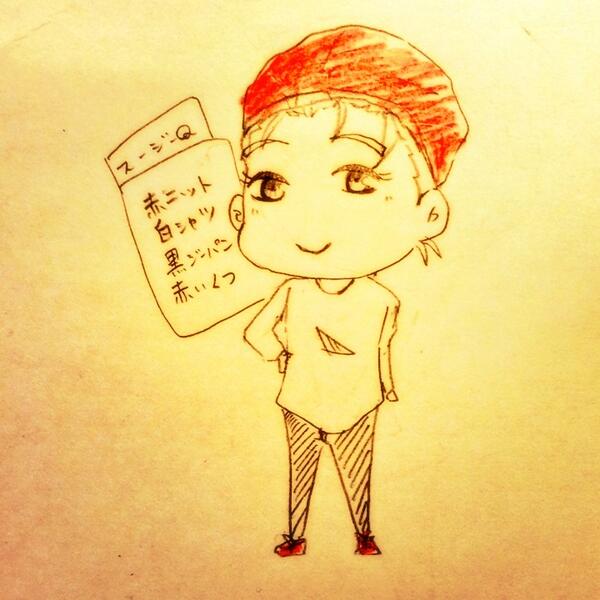 スージーQ
赤ニット
白シャツ
黒ジーパン
赤いくつ